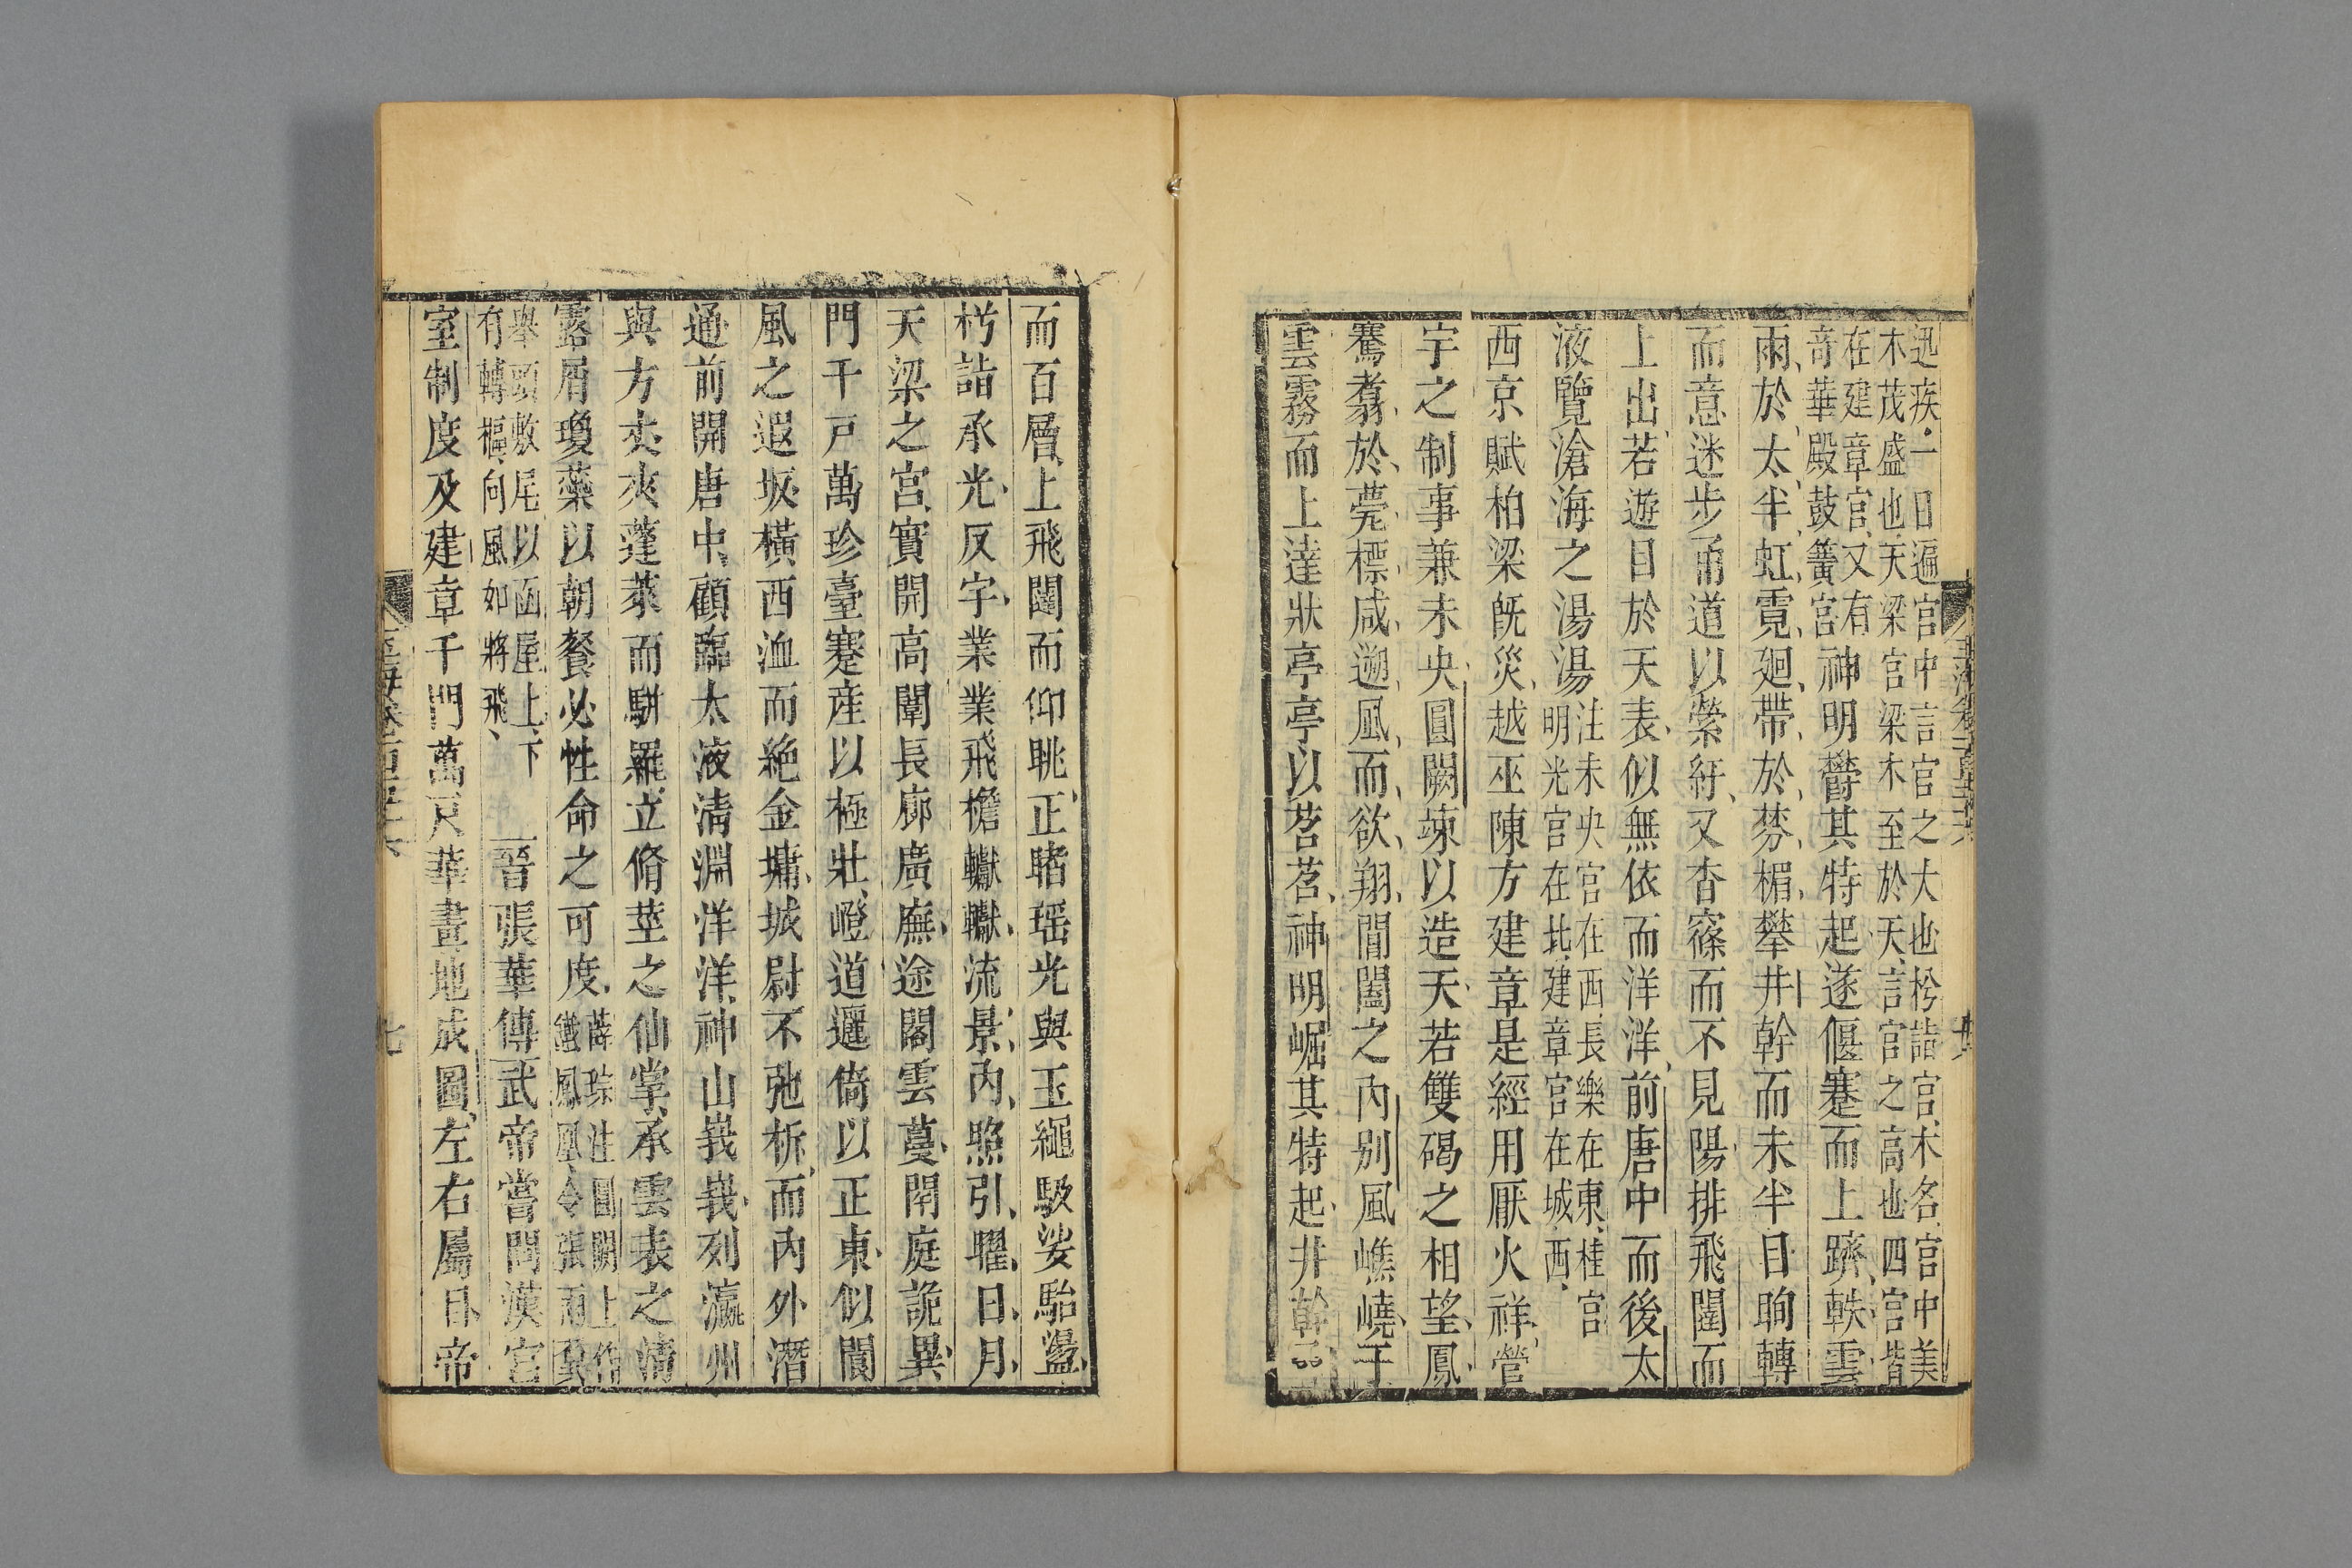 迅疾一日遍宫中言宫之大也枍詣宫木名宫中美
木茂盛也天梁宫梁木至於天言宫之高也四宫皆
在建章宫又有
奇華殿鼓簧宫
神明鬱其特起遂偃蹇而上躋軼雲
雨於太半虹霓廻帶於棼楣攀井幹而未半目眴轉
而意迷步甬道以縈紆又杳窱而不見陽排飛闥而
上出若遊目於天表似無依而洋洋前唐中而後太
液覽滄海之湯湯
注未央宫在西長樂在東桂宫
明光宫在北建章宫在城西
西京賦柏梁旣災越巫陳方建章是經用厭火祥營
宇之制事兼未央圓闕竦以造天若雙碣之相望鳳
騫翥於甍標咸遡風而欲翔閶闔之內别風嶕嶢干
雲霧而上達狀亭亭以苕苕神明崛其特起井幹
而百層上飛闥而仰眺正睹瑶光與玉繩馺娑駘盪
枍詣承光反宇業業飛檐轥轥流景內照引曜日月
天梁之宫實開高闈長廊廣廡途閣雲蔓閈庭詭異
門千戸萬珍臺蹇産以極壯嶝道邐倚以正東似閬
風之遐坂橫西洫而絶金墉城尉不弛柝而內外潛
通前開唐中顧臨太液清淵洋洋神山峩峩列瀛州
與方丈夾蓬萊而駢羅立脩莖之仙掌承雲表之清
露屑瓊蘂以朝餐必性命之可度
薛琮注圓闕上作
鐵鳳凰令張兩翼
舉頭敷尾以函屋上下
有轉樞向風如將飛
晉張華傳武帝嘗問漢宫
室制度及建章千門萬戸華畫地成圖左右屬目帝